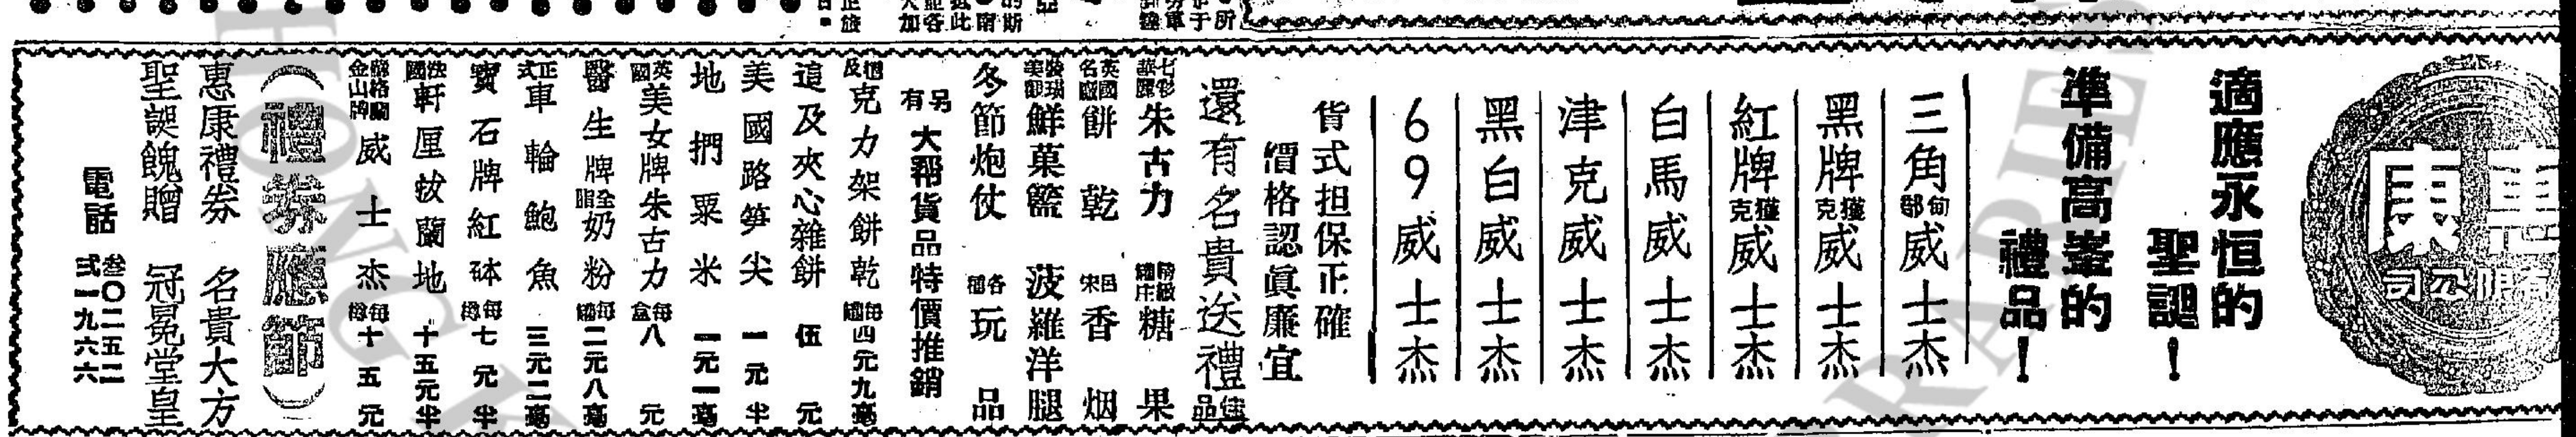 惠康
有限公司
適應永恒的
聖誕！
準備高峯的
禮品！
三角牌旬邨威士杰
黑牌獲克威士杰
紅牌獲克威士杰
白馬威士杰
津克威士杰
黑白威士杰
69威士杰
貨式担保正確
價格認眞廉宜
還有名貴送禮佳品
七彩華麗朱古力
糖果
英國名廠餅乾
呂宋香烟
裝璜美觀鮮菓籃
菠蘿洋腿
冬節炮仗
各種玩品
另有大帮貨品特價推銷
克力架餅乾每罐四元九毫
及夾心雜餅 伍元
美國路笋尖 一元半
地捫粟米 一元一毫
英國美女牌朱古力每盒八元
醫生牌全脂奶粉每罐二元八毫
正式車輪鮑魚 三元二毫
寶石牌紅砵每樽七元半
法國軒厘拔蘭地 十五元半
蘇格蘭金山牌威士杰每樽十五元
（禮券應節）
惠康禮券 名貴大方
聖誕餽贈 冠冕堂皇
電話 叁〇二五二
弍一九六六